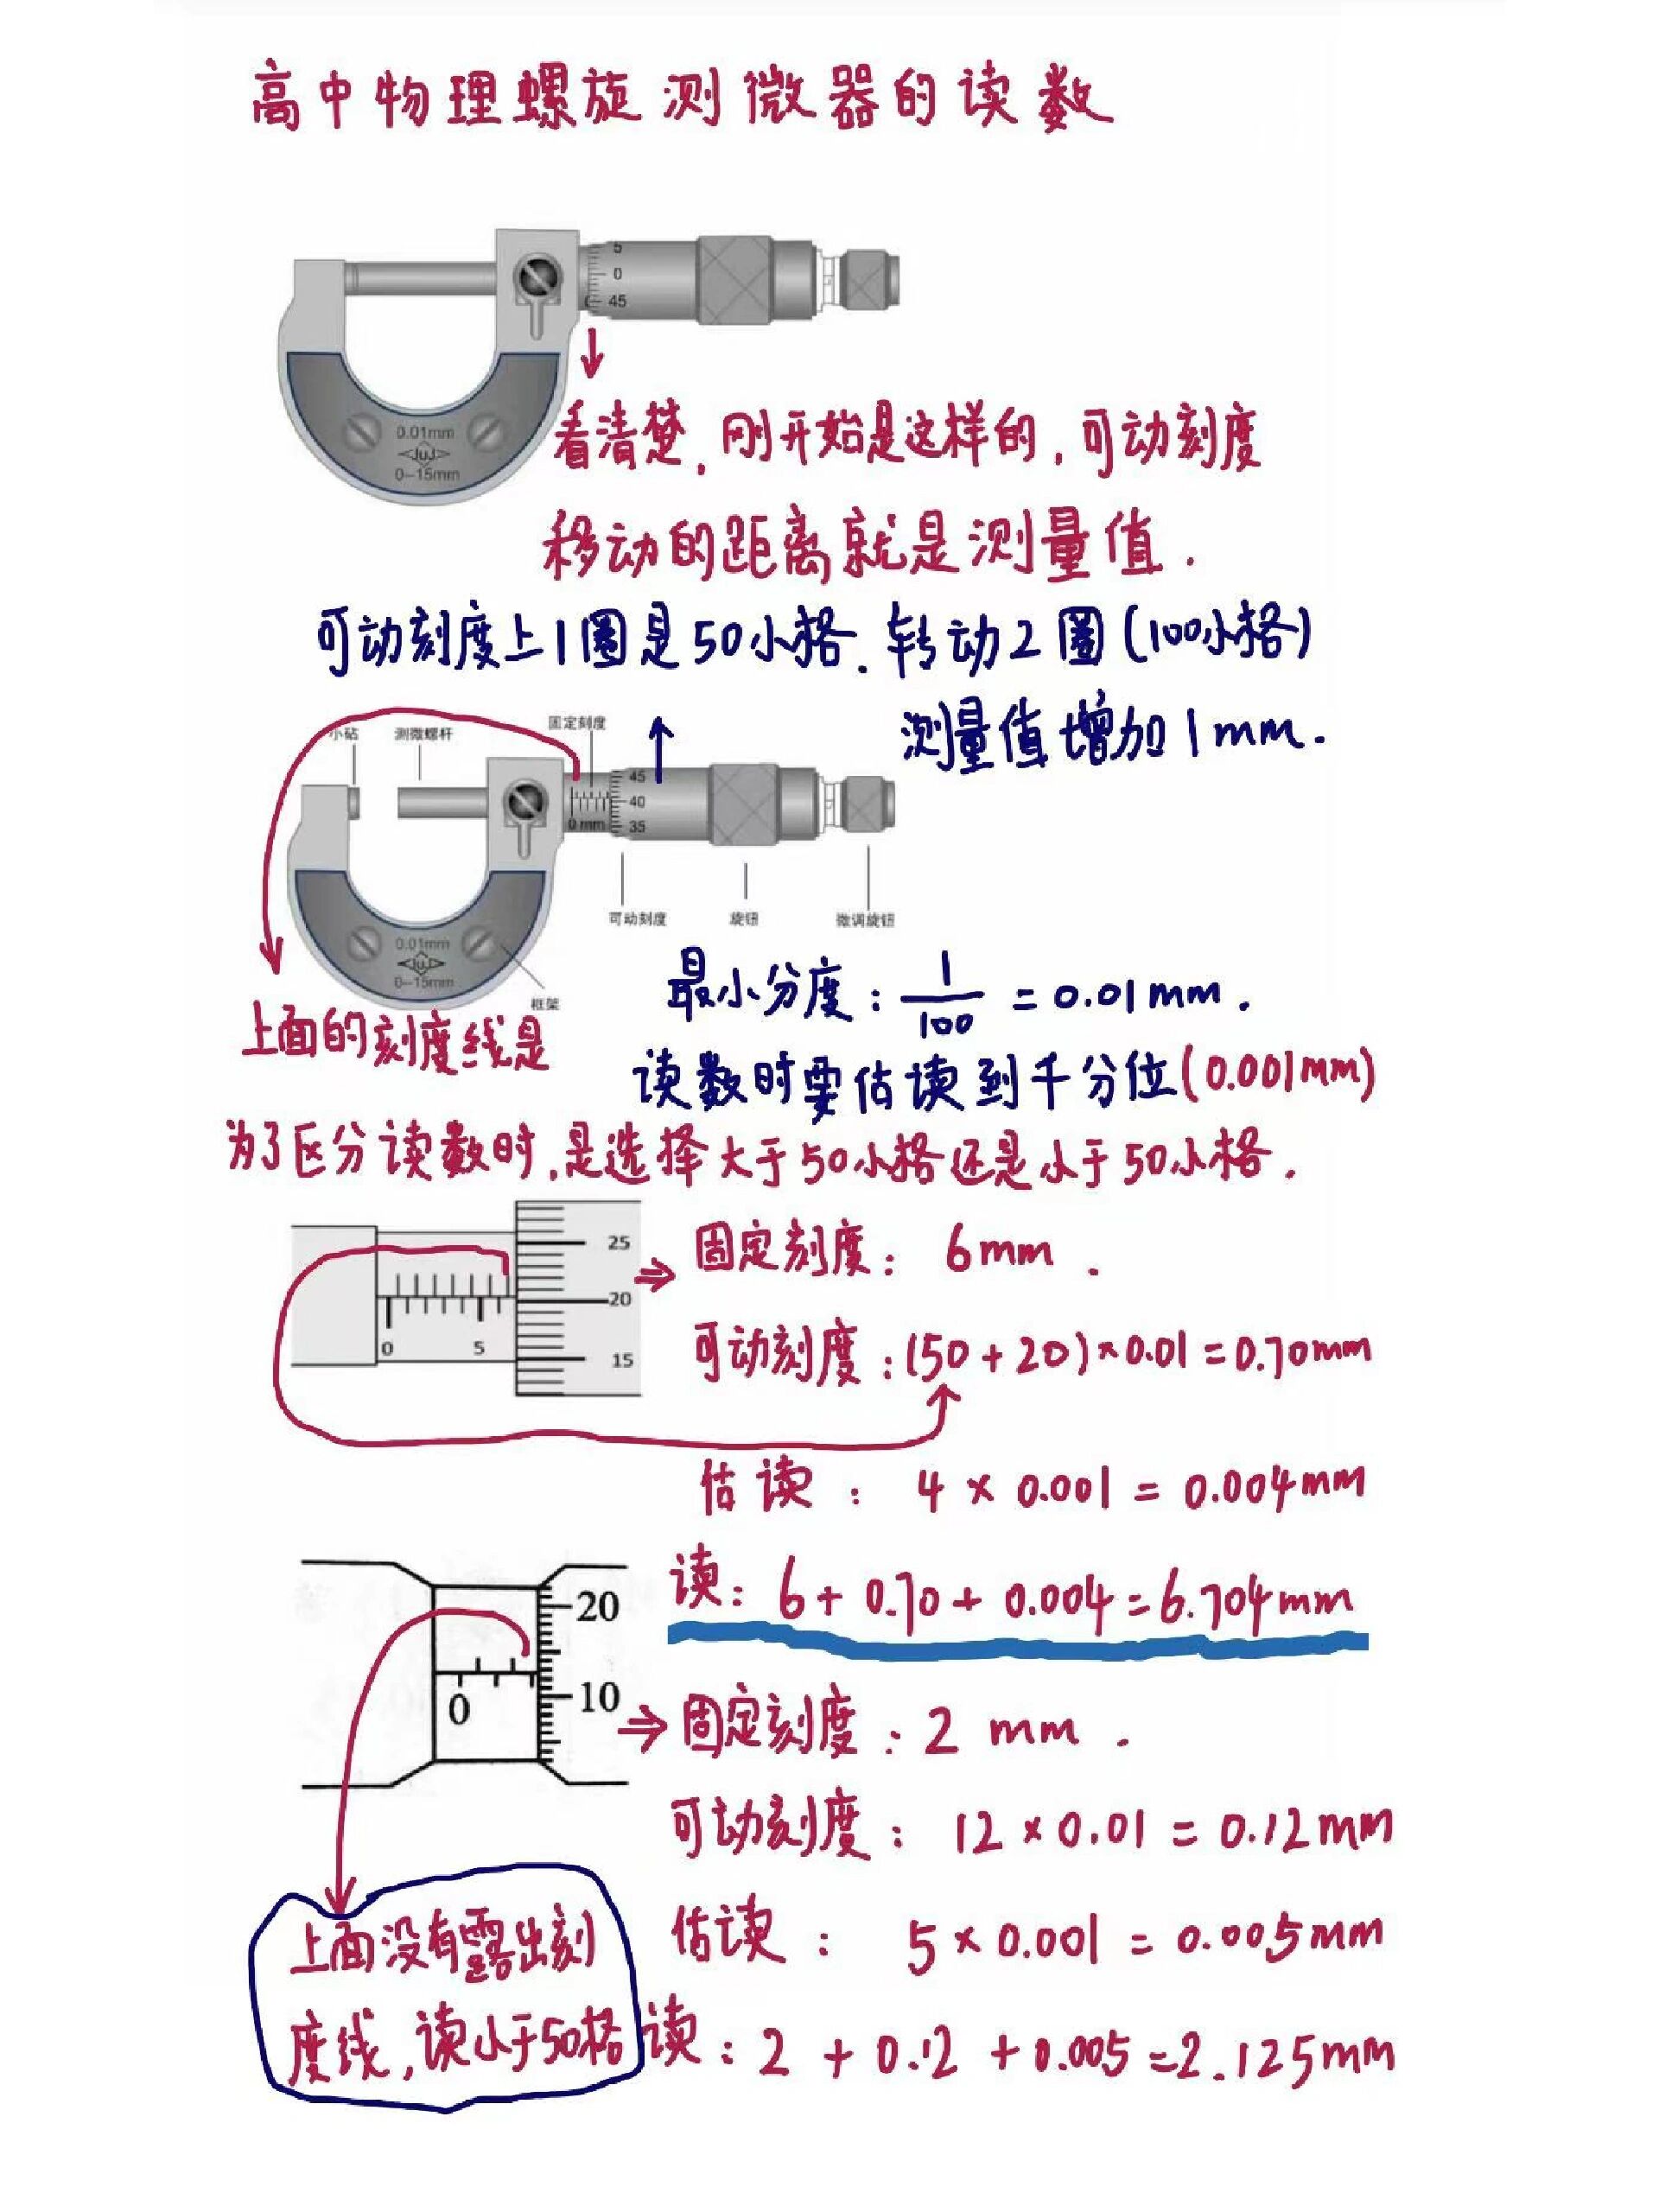 高中物理螺旋测微器的读数
5
0
45
0.01mm
JuJ
0-15mm
看清楚,刚开始是这样的,可动刻度
移动的距离就是测量值.
可动刻度上1圈是50小格.转动2圈(100小格)
测量值增加1mm.
小砧 测微螺杆 固定刻度
45
40
35
0 mm
可动刻度 旋钮 微调旋钮
0.01mm
JuJ
0-15mm
框架
最小分度: 1/100 = 0.01mm.
读数时要估读到千分位(0.001mm)
上面的刻度线是
为了区分读数时,是选择大于50小格还是小于50小格.
25
20
15
0 5
固定刻度: 6mm.
可动刻度:(50+20)×0.01=0.70mm
估读: 4×0.001=0.004mm
读: 6+0.70+0.004=6.704mm
20
10
0
固定刻度:2 mm.
可动刻度: 12×0.01=0.12mm
估读: 5×0.001=0.005mm
上面没有露出刻
度线,读小于50格
读:2+0.12+0.005=2.125mm